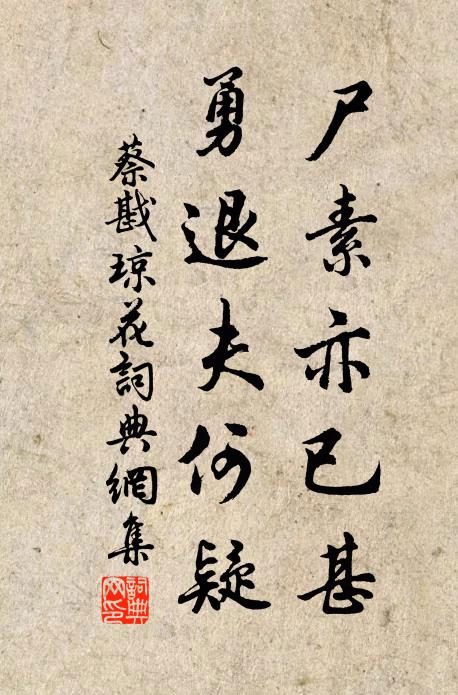 尸素亦已甚
勇退夫何疑
蔡戡琼花詞典網集
詞典網印